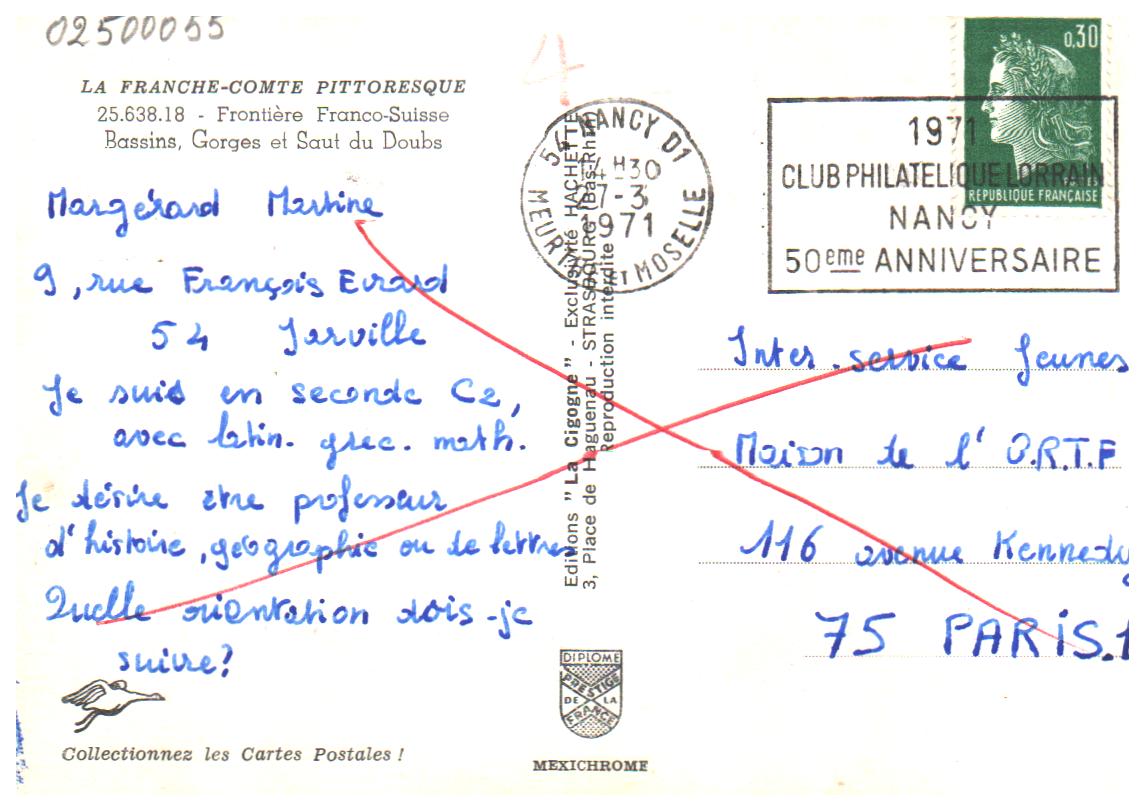 02500055
4
LA FRANCHE-COMTE PITTORESQUE
25.638.18 - Frontière Franco-Suisse
Bassins, Gorges et Saut du Doubs
Margérard Martine
9, rue François Evrard
54 Jarville
Je suis en seconde C2,
avec latin. grec. math.
Je désire être professeur
d'histoire, géographie ou de lettres
Quelle orientation dois-je
suivre?
Collectionnez les Cartes Postales !
Editions "La Cigogne" - Exclusivité HACHETTE
3, Place de Haguenau - STRASBOURG (Bas-Rhin)
Reproduction interdite
54 NANCY D1
14H30
27-3
1971
MEURTHE ET MOSELLE
DIPLOME
PRESTIGE
DE LA
FRANCE
MEXICHROME
0,30
POSTES
REPUBLIQUE FRANÇAISE
1971
CLUB PHILATELIQUE LORRAIN
NANCY
50eme ANNIVERSAIRE
Inter-service Jeunes
Maison de l'O.R.T.F
116 avenue Kennedy
75 PARIS.1